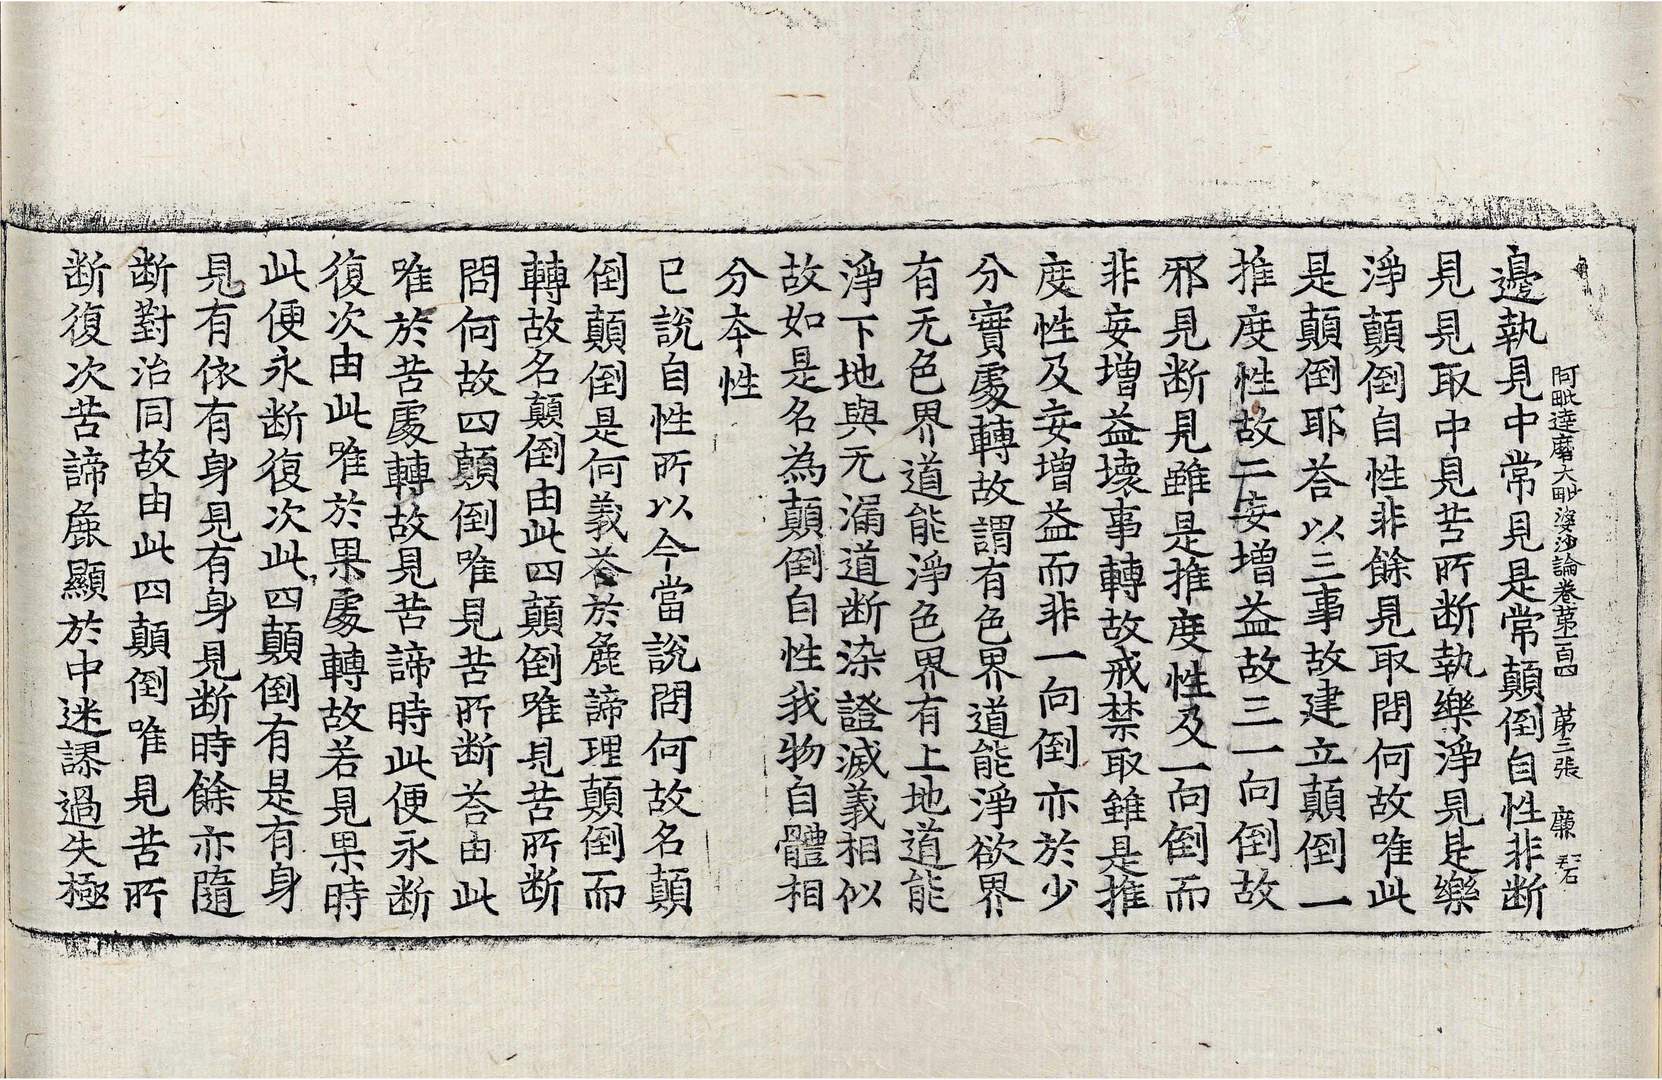 阿毗達磨大毗婆沙論卷第一百四 第三張 廉
邊執見中常見是常顛倒自性非斷
見見取中見苦所斷執樂淨見是樂
淨顛倒自性非餘見取問何故唯此
是顛倒耶荅以三事故建立顛倒一
推度性故二妄增益故三一向倒故
邪見断見雖是推度性及一向倒而
非妄增益壞事轉故戒禁取雖是推
度性及妄增益而非一向倒亦於少
分實處轉故謂有色界道能淨欲界
有无色界道能淨色界有上地道能
淨下地與无漏道断染證滅義相似
故如是名為顛倒自性我物自體相
分本性
已說自性所以今當說問何故名顛
倒顛倒是何義荅於麁諦理顛倒而
轉故名顛倒由此四顛倒唯見苦所断
問何故四顛倒唯見苦所断荅由此
唯於苦處轉故見苦諦時此便永断
復次由此唯於果處轉故若見果時
此便永断復次此四顛倒有是有身
見有依有身見有身見断時餘亦隨
断對治同故由此四顛倒唯見苦所
断復次苦諦麁顯於中迷謬過失極